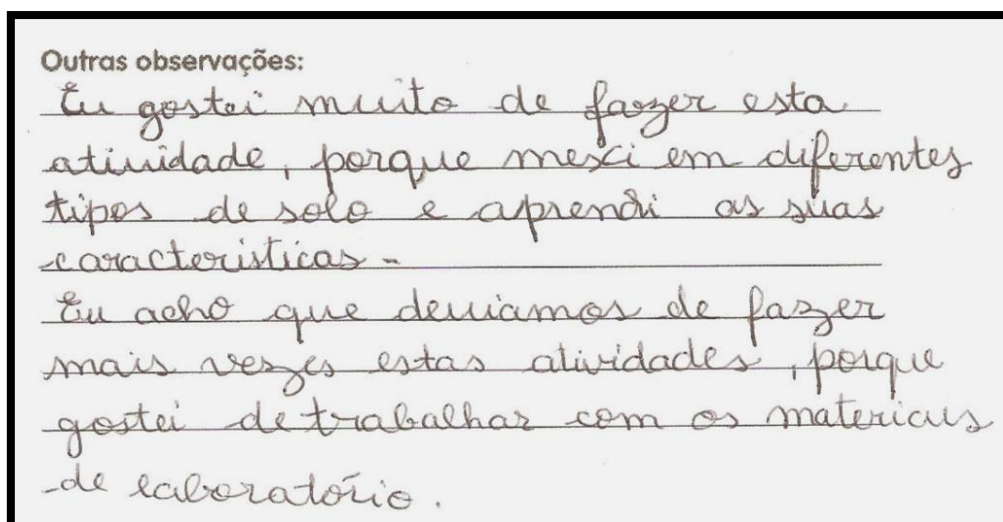 Outras observações:
Eu gostei muito de fazer esta
atividade, porque mexi em diferentes
tipos de solo e aprendi as suas
caracteristicas.
Eu acho que deviamos de fazer
mais vezes estas atividades, porque
gostei de trabalhar com os materiais
de laboratório.